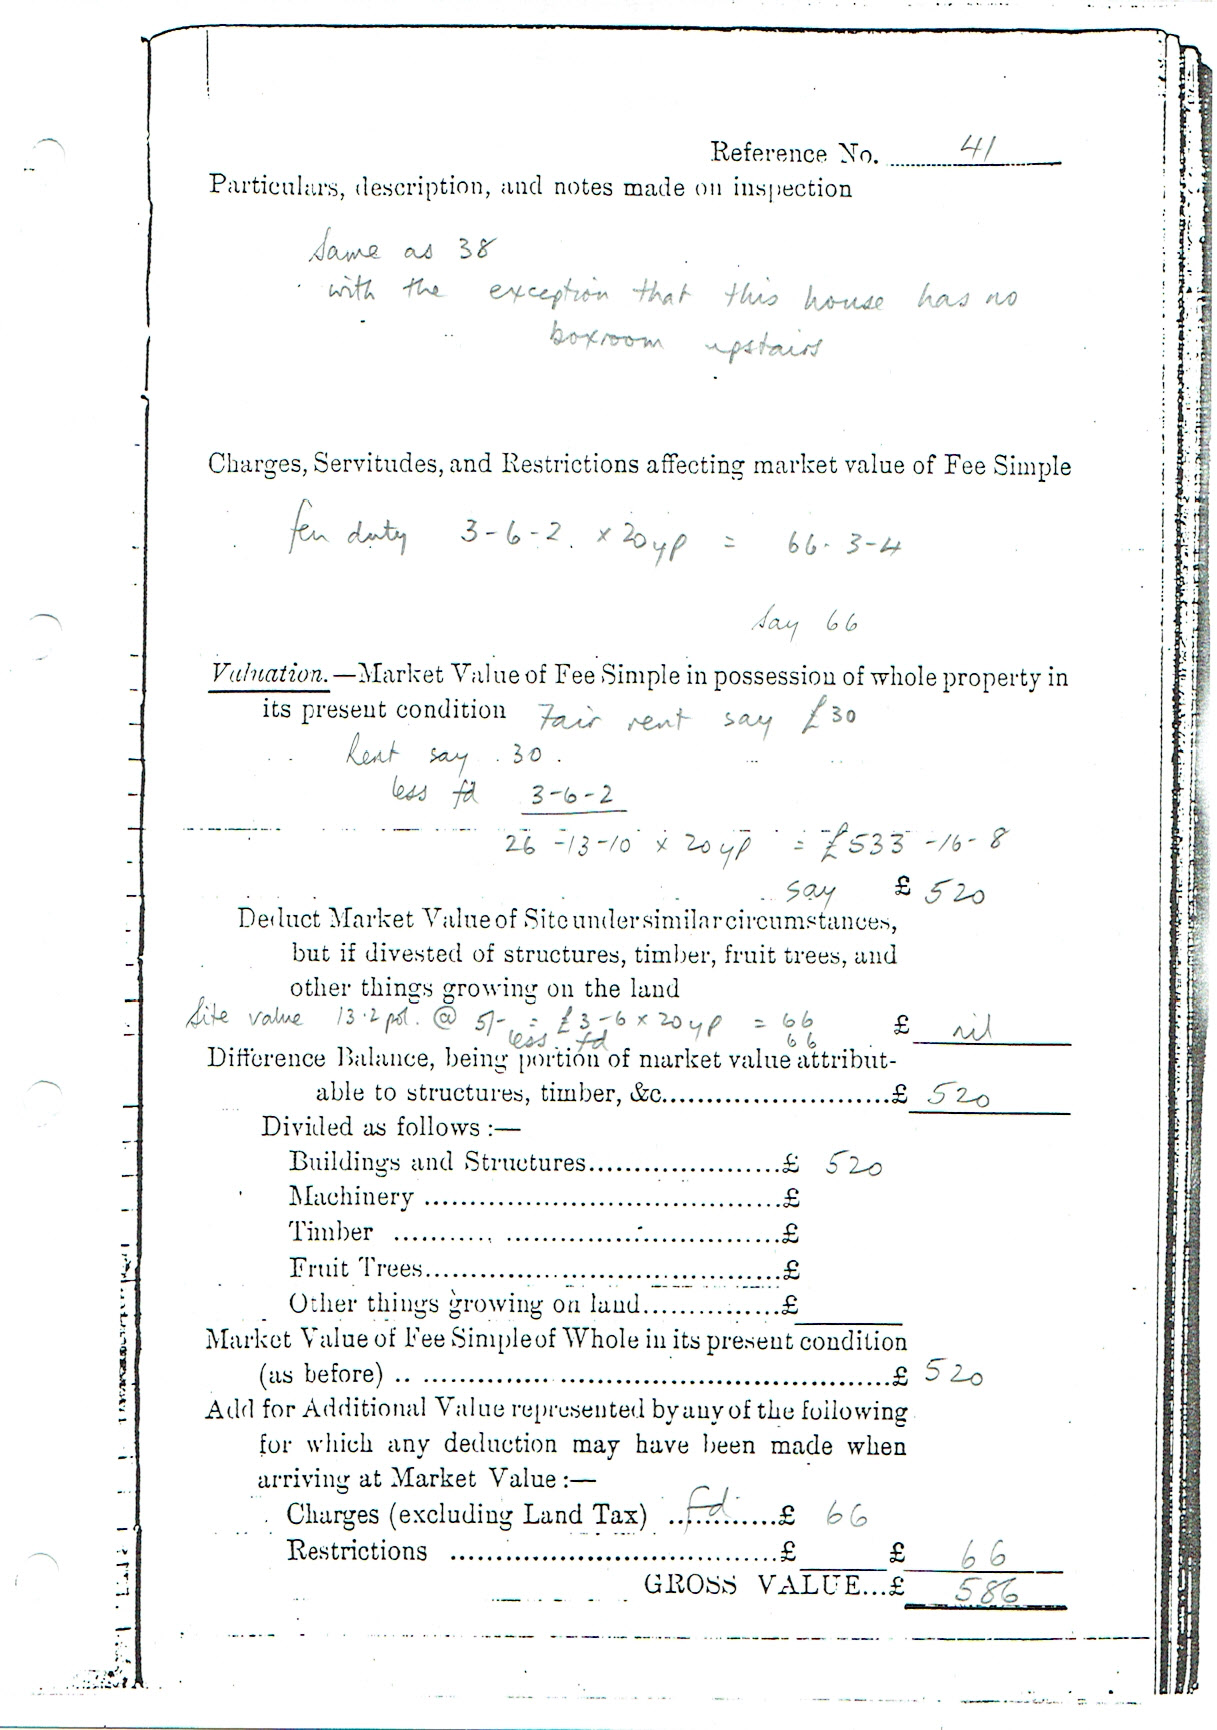 Reference No. 41
Particulars, description, and notes made on inspection
Same as 38
with the exception that this house has no
boxroom upstairs
Charges, Servitudes, and Restrictions affecting market value of Fee Simple
feu duty 3-6-2. × 20 yp = 66-3-4
say 66
Valuation.—Market Value of Fee Simple in possession of whole property in
its present condition Fair rent say £30
Rent say 30.
less fd 3-6-2
26-13-10 × 20 yp = £533-16-8
say £ 520
Deduct Market Value of Site under similar circumstances,
but if divested of structures, timber, fruit trees, and
other things growing on the land
Site value 13.2 pol. @ 5/- = £3-6 × 20 yp = 66 £ nil
less fd 66
Difference Balance, being portion of market value attribut-
able to structures, timber, &c.........................£ 520
Divided as follows :—
Buildings and Structures......................£ 520
Machinery .....................................£
Timber .....................................£
Fruit Trees.....................................£
Other things growing on land...............£
Market Value of Fee Simple of Whole in its present condition
(as before) .. ...............................................£ 520
Add for Additional Value represented by any of the following
for which any deduction may have been made when
arriving at Market Value :—
Charges (excluding Land Tax) fd ............£ 66
Restrictions ..................................£ £ 66
GROSS VALUE...£ 586